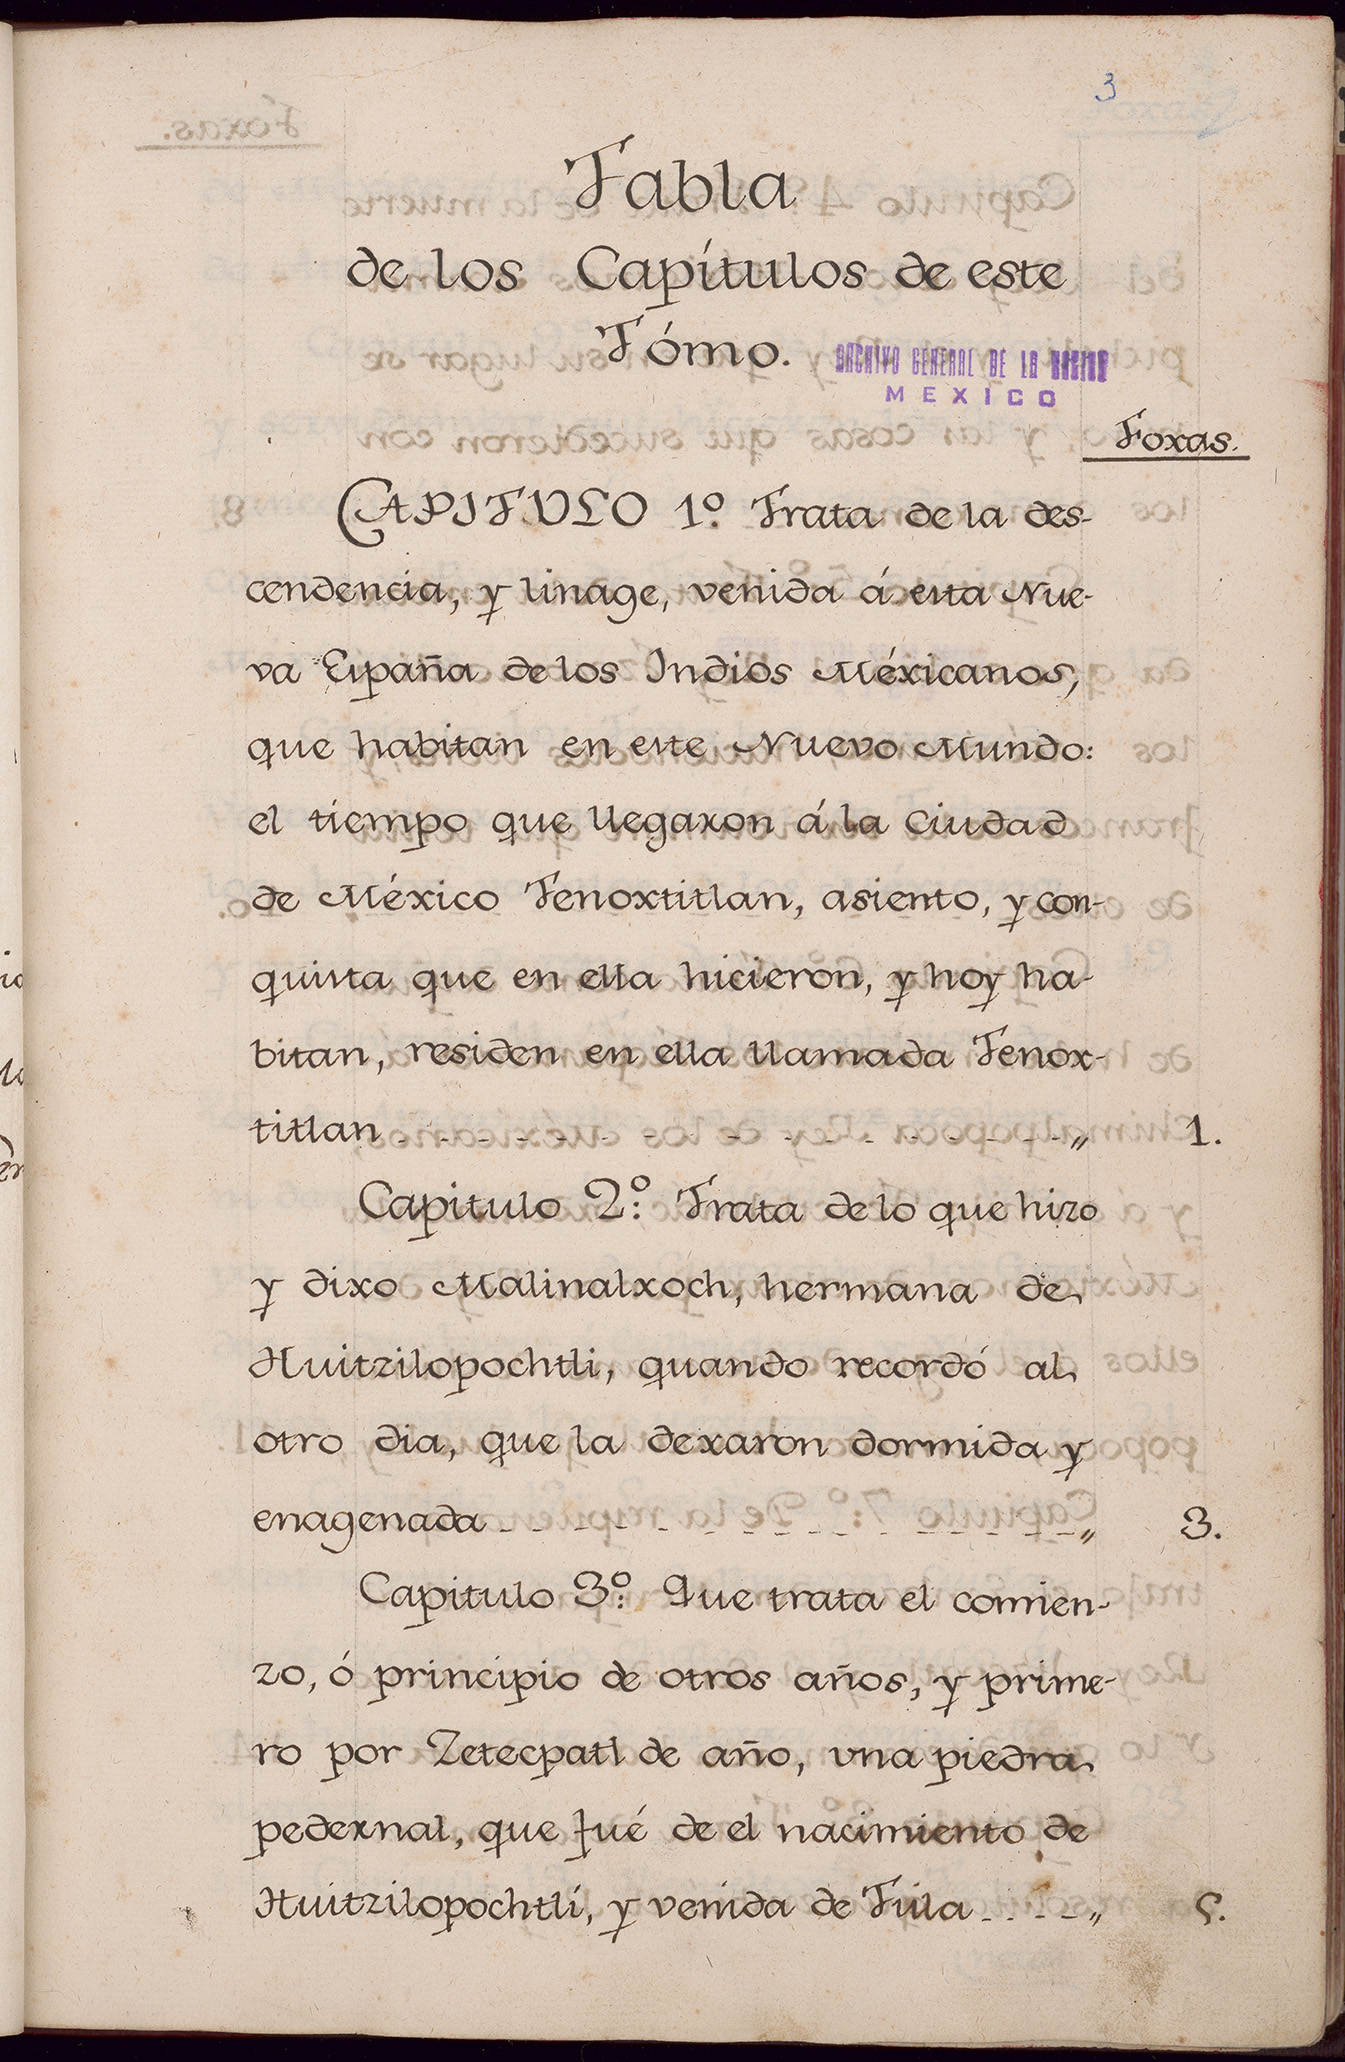 3
Tabla
de los Capítulos de este
Tómo.
ARCHIVO GENERAL DE LA NACION
MEXICO
Foxas.
CAPITULO 1º. Trata de la des-
cendencia, y linage, venida á esta Nue-
va España de los Indios Méxicanos,
que habitan en este Nuevo Mundo:
el tiempo que llegaron á la Ciudad
de México Tenoxtitlan, asiento, y con-
quista que en ella hicieron, y hoy ha-
bitan, residen en ella llamada Tenox-
titlan - - - - - - - - - - - - - - - - - „ 1.
Capitulo 2º. Trata de lo que hizo
y dixo Malinalxoch, hermana de
Huitzilopochtli, quando recordó al
otro dia, que la dexaron dormida y
enagenada - - - - - - - - - - - - - - - „ 3.
Capitulo 3º. Que trata el comien-
zo, ó principio de otros años, y prime-
ro por Zetecpatl de año, una piedra
pedernal, que fué de el nacimiento de
Huitzilopochtli, y venida de Tula - - - - „ 5.